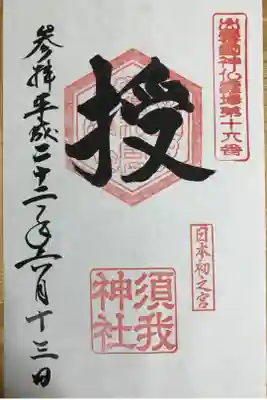 出雲國神仏霊場第十六番
日本初之宮
授
須我
神社
參拝平成二十二年六月十三日